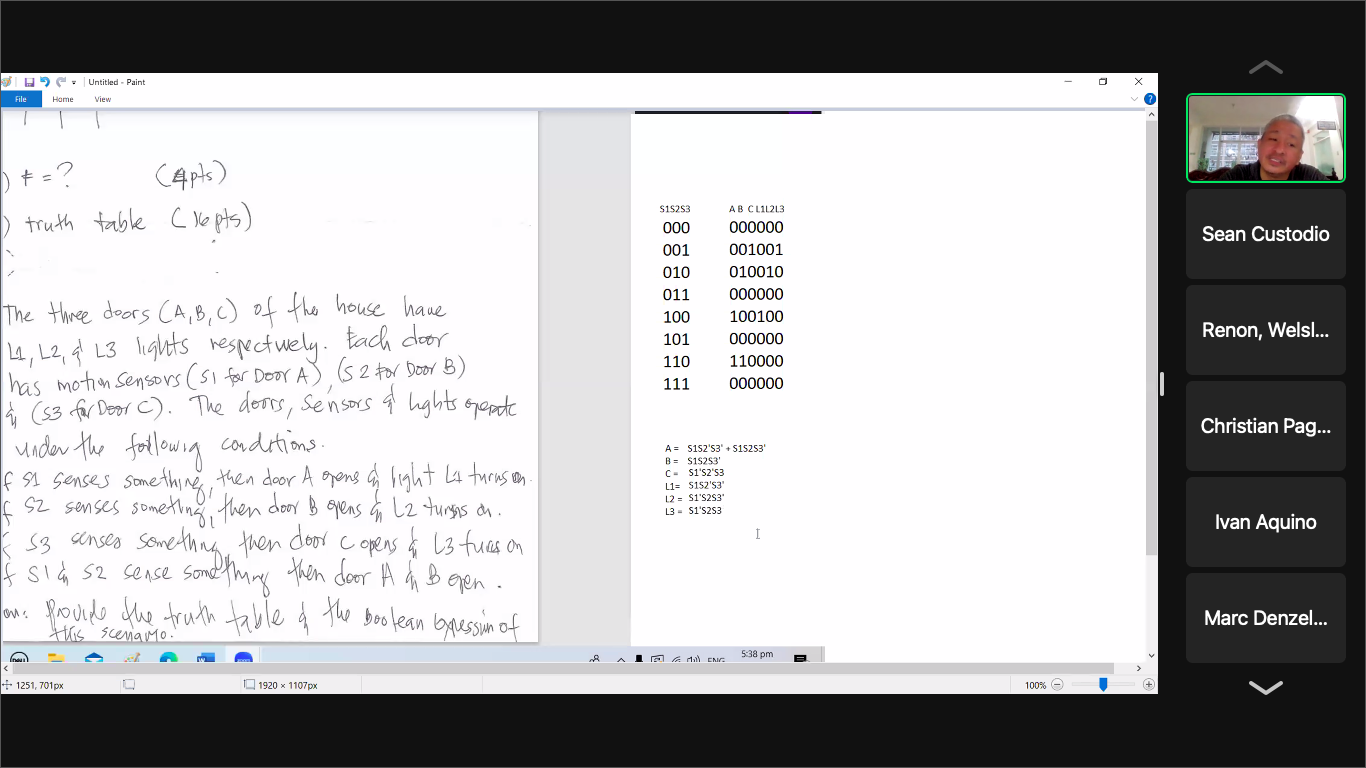 Untitled - Paint
File Home View
) F = ? (4pts)
) truth table (16pts)
The three doors (A, B, C) of the house have
L1, L2, & L3 lights respectively. Each door
has motion sensors (S1 for Door A), (S2 for Door B)
& (S3 for Door C). The doors, sensors & lights operate
under the following conditions.
f S1 senses something, then door A opens & light L1 turns on.
f S2 senses something, then door B opens & L2 turns on.
f S3 senses something then door C opens & L3 turns on
f S1 & S2 sense something then door A & B open.
on: Provide the truth table & the boolean expression of
this scenario.
S1S2S3 A B C L1L2L3
000 000000
001 001001
010 010010
011 000000
100 100100
101 000000
110 110000
111 000000
A = S1S2'S3' + S1S2S3'
B = S1S2S3'
C = S1'S2'S3
L1= S1S2'S3'
L2 = S1'S2S3'
L3 = S1'S2S3
5:38 pm
ENG
1251, 701px
1920 × 1107px
100%
Sean Custodio
Renon, Welsl...
Christian Pag...
Ivan Aquino
Marc Denzel...